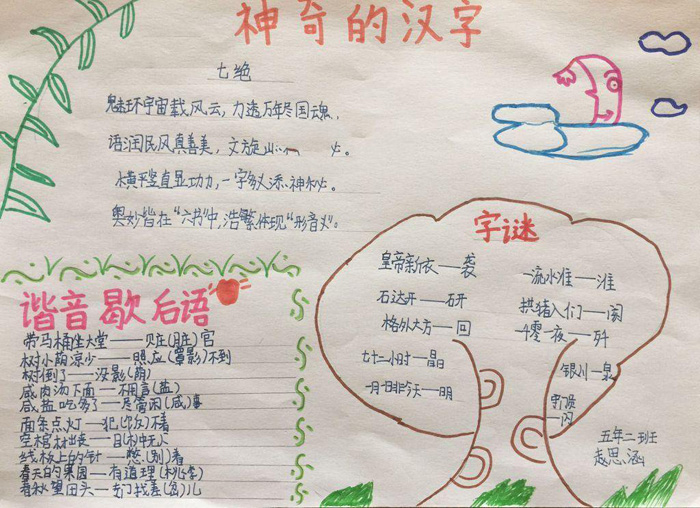 神奇的汉字
七绝
魅环宇宙载风云，力透万年尽国魂，
语润民风真善美，文旋山
横平竖直显功力，一字多义添神秘。
奥妙皆在“六书”中，浩繁体现“形音义”。
谐音歇后语
带马桶坐大堂——赃(脏)官
树小荫凉少——照应(罩影)不到
树倒了——没影(荫)
咸肉汤下面——不用言(盐)
咸盐吃多了——尽管闲(咸)事
面条点灯——犯(饭)不着
空棺材出丧——目(木)中无人
线板上的针——憋(别)着
春天的果园——有道理(桃李)
春秋望田头——专门找差(岔)儿
字谜
皇帝新衣——袭
石达开——研
格外大方——回
七十二小时——晶
一月一日非今天——明
一流水准——淮
拱猪入门——阂
一千零一夜——歼
银川——泉
顶一闪
五年二班
赵思涵